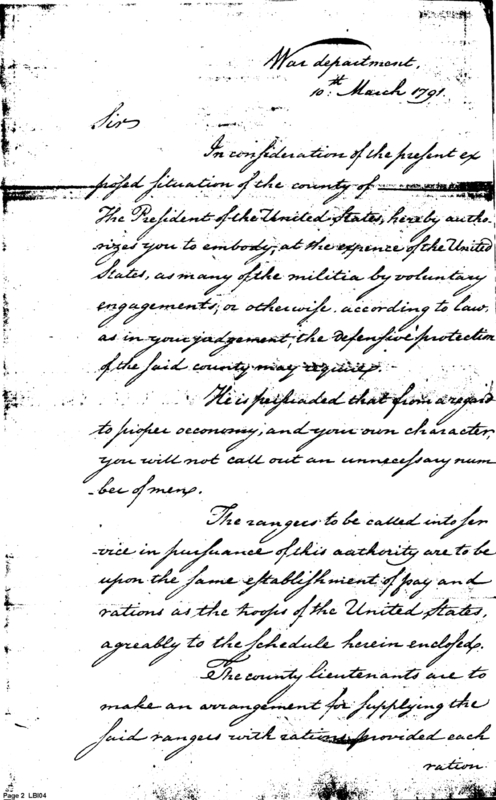 War department,
10th March 1791.
Sir
In consideration of the present ex
posed situation of the county of
The President of the United States, hereby autho-
rizes you to embody, at the expence of the United
States, as many of the militia by voluntary
engagements, or otherwise, according to law,
as in your judgement, the defensive protection
of the said county may require.
He is persuaded that from a regard
to proper oeconomy, and your own character,
you will not call out an unnecessary num
-ber of men.
The rangers to be called into ser
-vice in pursuance of this authority are to be
upon the same establishment of pay and
rations as the troops of the United States,
agreably to the schedule herein enclosed.
The county lieutenants are to
make an arrangement for supplying the
said rangers with rations provided each
ration
Page 2 LBI04